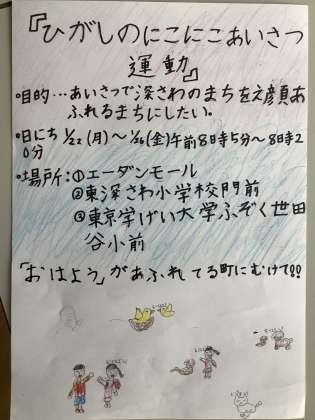 『ひがしのにこにこあいさつ
運動』
・目的…あいさつで深さわのまちを笑顔あ
ふれるまちにしたい。
・日にち 1/22(月)〜1/26(金)午前8時5分〜8時2
0分
・場所:①エーダンモール
②東深さわ小学校門前
③東京学げい大学ふぞく世田
谷小前
「おはよう」があふれてる町にむけて!!